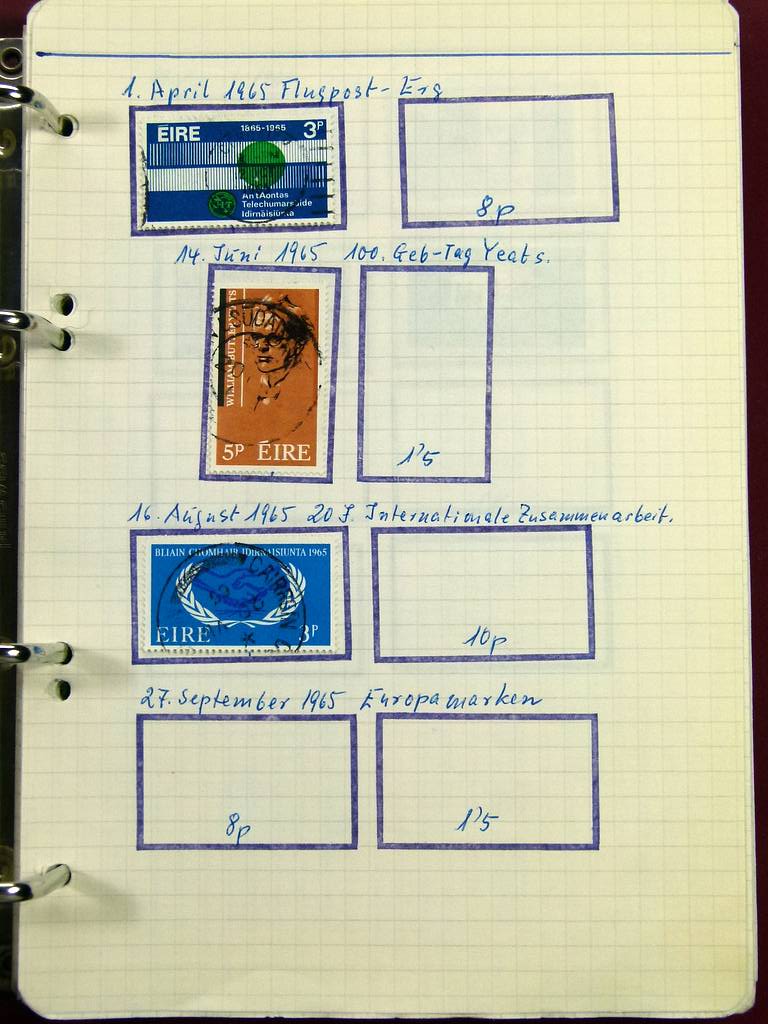 1. April 1965 Flugpost-Erg
ÉIRE 1865-1965 3P
An tAontas
Telechumarsáide
Idirnáisiúnta
8p
14. Juni 1965 100. Geb-Tag Yeats.
WILLIAM BUTLER YEATS
5P ÉIRE
1'5
16. August 1965 20 J. Internationale Zusammenarbeit.
BLIAIN CHOMHAIR IDIRNÁISIÚNTA 1965
EIRE 3P
10p
27. September 1965 Europamarken
8p
1'5